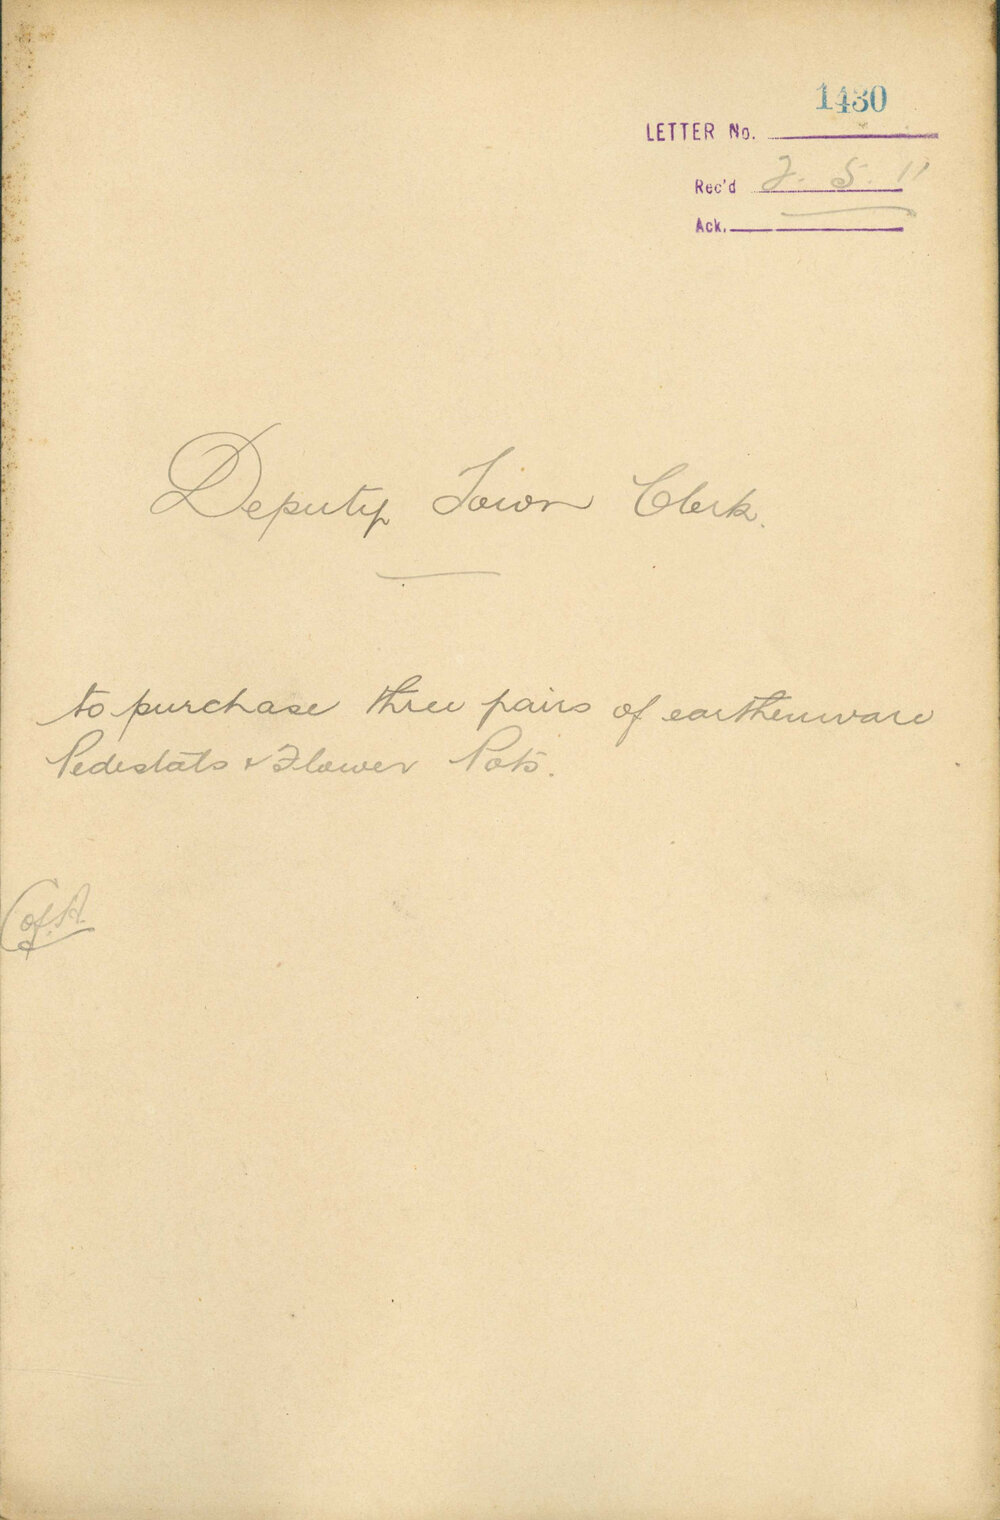 1430
LETTER No.
Rec'd 2. 5. 11
Ack.
Deputy Town Clerk.
to purchase three pairs of earthenware
Pedestals & Flower Pots.
C of A.